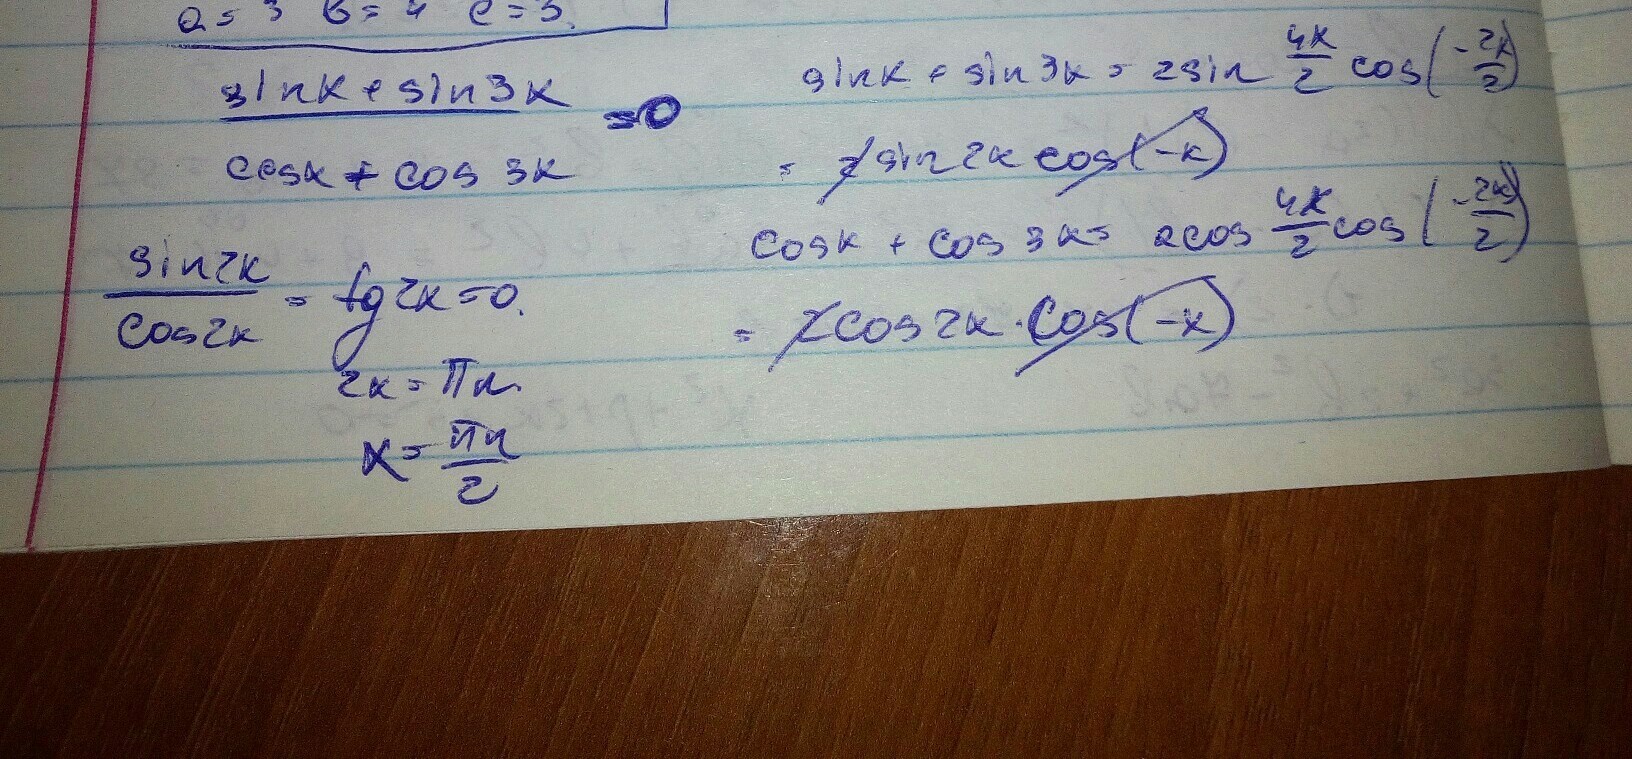 a = 3 b = 4 c = 3.
sinx + sin3x
/ cosx + cos3x = 0
sin2x / cos2x = tg2x = 0.
2x = πn.
x = πn / 2
sinx + sin3x = 2sin 4x/2 cos(-2x/2)
= 2sin2x cos(-x)
cosx + cos3x = 2cos 4x/2 cos(-2x/2)
= 2cos2x · cos(-x)